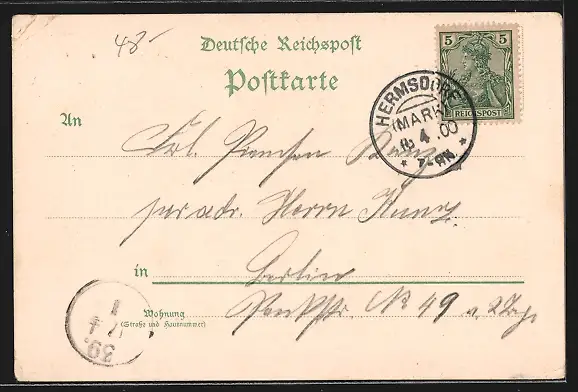 48-
Deutsche Reichspost
Postkarte
5 5
REICHSPOST
HERMSDORF
(MARK)
4 .00
7-8N
An
Frl.
per adr. Herrn Kunz
in Berlin
Wohnung
(Straße und Hausnummer)
No 49 2 Trp.
1
7 4
39.